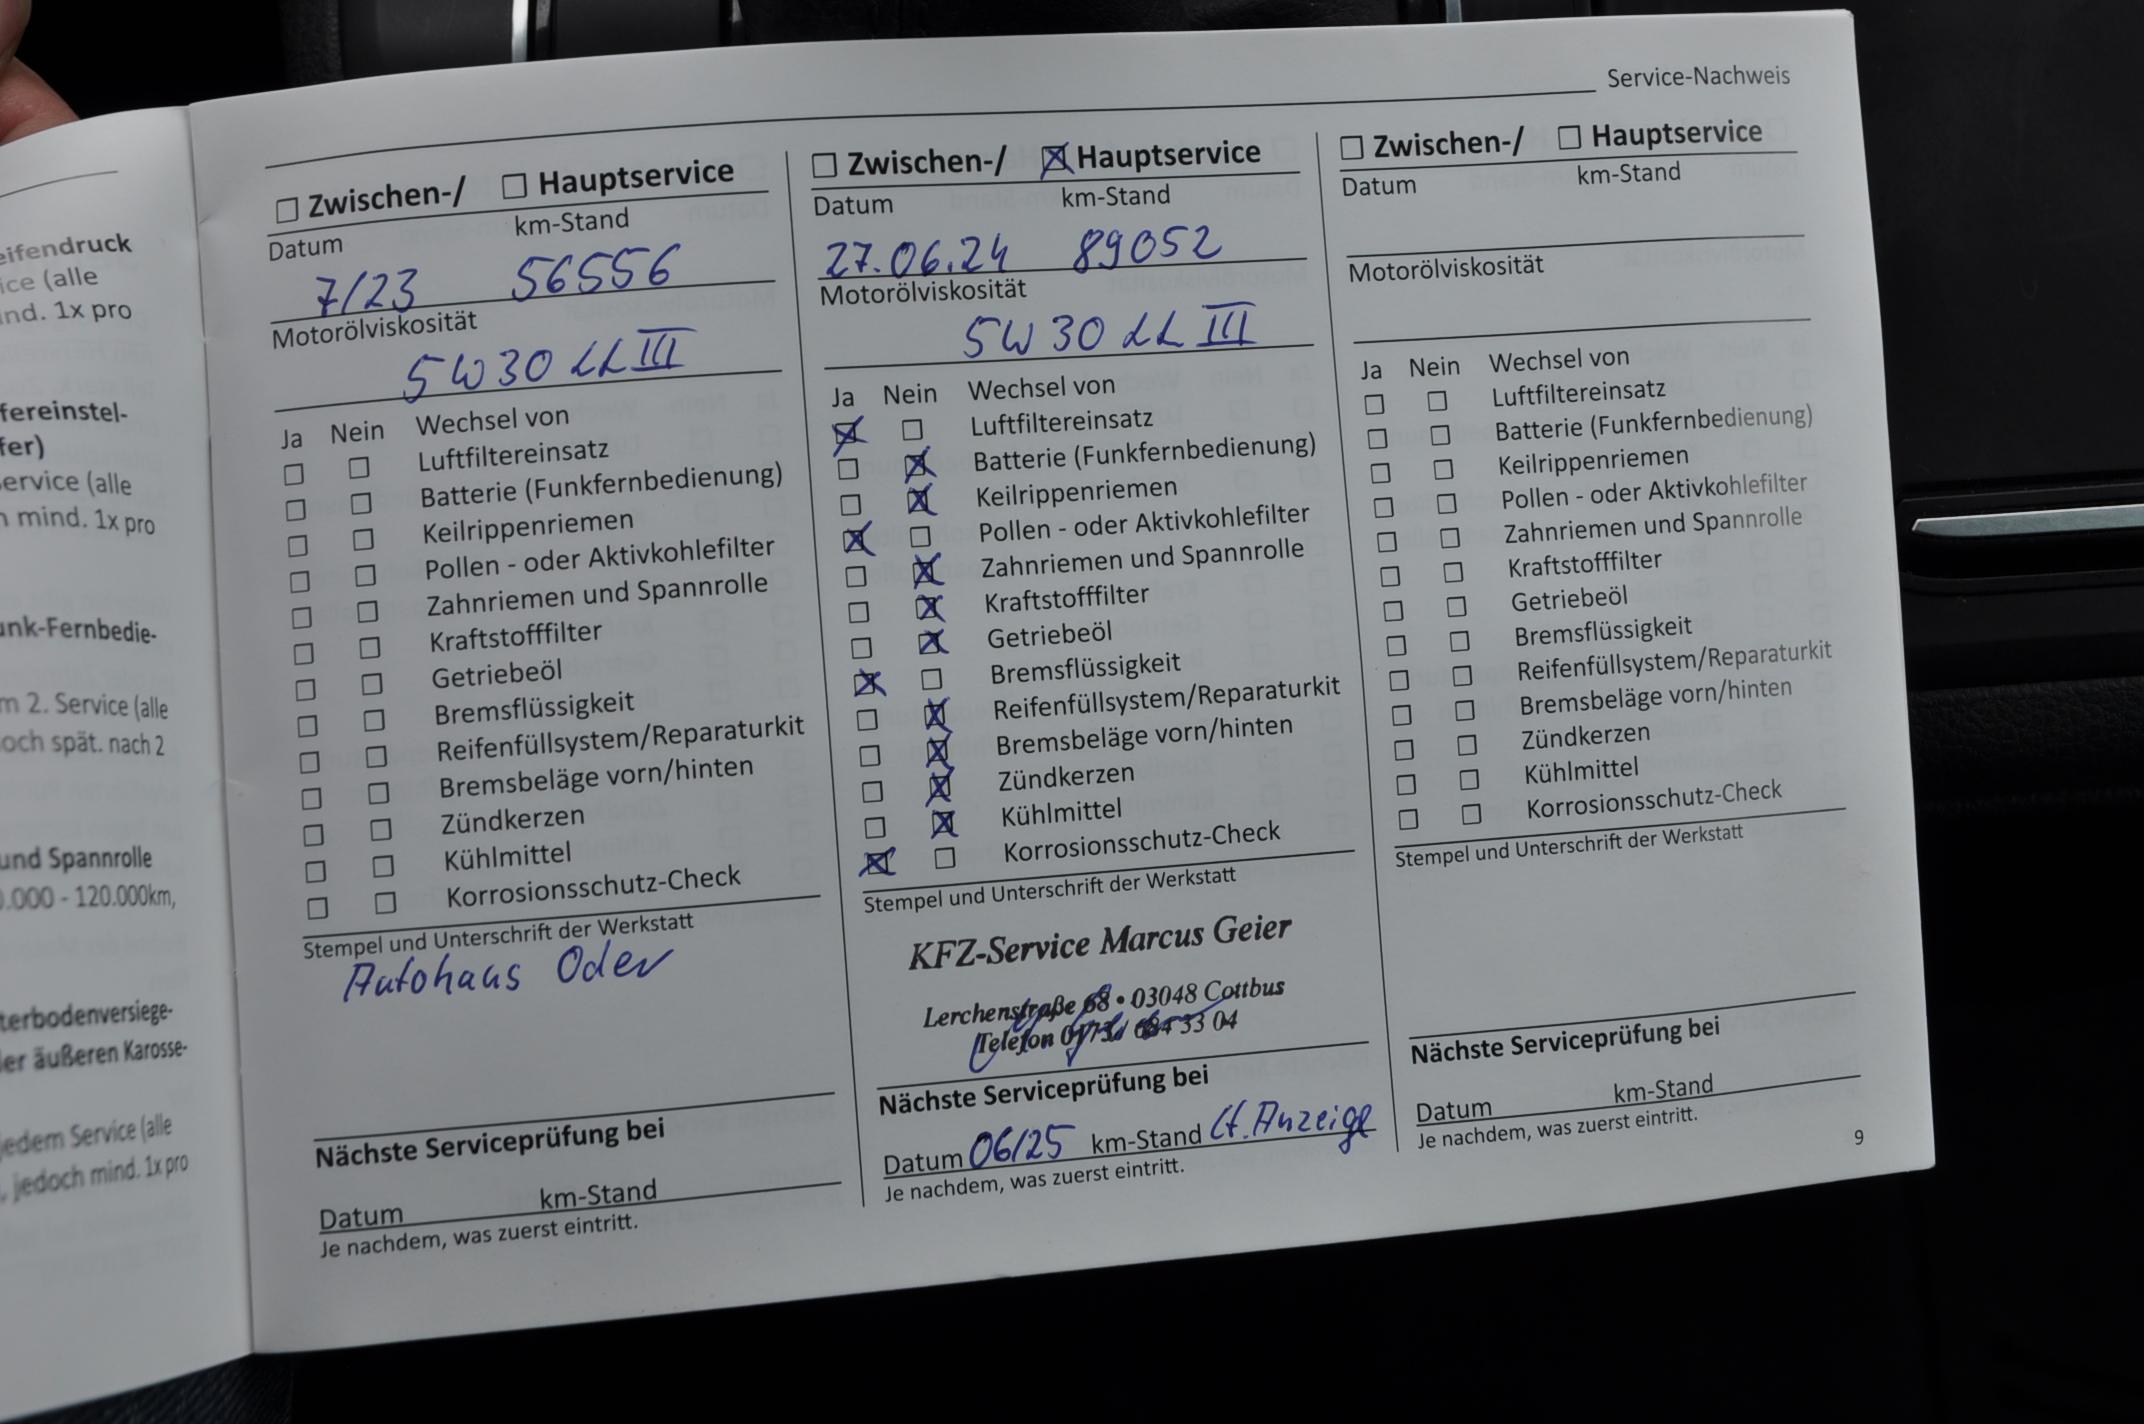 eifendruck
ice (alle
ind. 1x pro
fereinstel-
fer)
ervice (alle
n mind. 1x pro
unk-Fernbedie-
m 2. Service (alle
och spät. nach 2
und Spannrolle
0.000 - 120.000km,
terbodenversiege-
ler äußeren Karosse-
jedem Service (alle
, jedoch mind. 1x pro
Service-Nachweis
☐ Zwischen-/ ☐ Hauptservice
Datum km-Stand
7/23 56556
Motorölviskosität
5W30 LL III
Ja Nein Wechsel von
☐ ☐ Luftfiltereinsatz
☐ ☐ Batterie (Funkfernbedienung)
☐ ☐ Keilrippenriemen
☐ ☐ Pollen - oder Aktivkohlefilter
☐ ☐ Zahnriemen und Spannrolle
☐ ☐ Kraftstofffilter
☐ ☐ Getriebeöl
☐ ☐ Bremsflüssigkeit
☐ ☐ Reifenfüllsystem/Reparaturkit
☐ ☐ Bremsbeläge vorn/hinten
☐ ☐ Zündkerzen
☐ ☐ Kühlmittel
☐ ☐ Korrosionsschutz-Check
Stempel und Unterschrift der Werkstatt
Autohaus Oder
Nächste Serviceprüfung bei
Datum km-Stand
Je nachdem, was zuerst eintritt.
☐ Zwischen-/ ☒ Hauptservice
Datum km-Stand
27.06.24 89052
Motorölviskosität
5W30 LL III
Ja Nein Wechsel von
☒ ☐ Luftfiltereinsatz
☐ ☒ Batterie (Funkfernbedienung)
☐ ☒ Keilrippenriemen
☒ ☐ Pollen - oder Aktivkohlefilter
☐ ☒ Zahnriemen und Spannrolle
☐ ☒ Kraftstofffilter
☐ ☒ Getriebeöl
☒ ☐ Bremsflüssigkeit
☐ ☒ Reifenfüllsystem/Reparaturkit
☐ ☒ Bremsbeläge vorn/hinten
☐ ☒ Zündkerzen
☐ ☒ Kühlmittel
☒ ☐ Korrosionsschutz-Check
Stempel und Unterschrift der Werkstatt
KFZ-Service Marcus Geier
Lerchenstraße 68 • 03048 Cottbus
Telefon 33 04
Nächste Serviceprüfung bei
Datum 06/25 km-Stand Lt. Anzeige
Je nachdem, was zuerst eintritt.
☐ Zwischen-/ ☐ Hauptservice
Datum km-Stand
Motorölviskosität
Ja Nein Wechsel von
☐ ☐ Luftfiltereinsatz
☐ ☐ Batterie (Funkfernbedienung)
☐ ☐ Keilrippenriemen
☐ ☐ Pollen - oder Aktivkohlefilter
☐ ☐ Zahnriemen und Spannrolle
☐ ☐ Kraftstofffilter
☐ ☐ Getriebeöl
☐ ☐ Bremsflüssigkeit
☐ ☐ Reifenfüllsystem/Reparaturkit
☐ ☐ Bremsbeläge vorn/hinten
☐ ☐ Zündkerzen
☐ ☐ Kühlmittel
☐ ☐ Korrosionsschutz-Check
Stempel und Unterschrift der Werkstatt
Nächste Serviceprüfung bei
Datum km-Stand
Je nachdem, was zuerst eintritt.
9